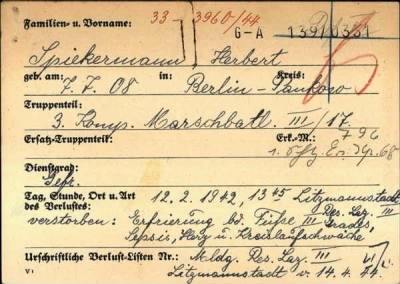 Familien- u. Vorname: 33 3960/44
G-A 139/0331
Spiekermann Herbert
geb. am: 7.7.08 in: Berlin-Pankow Kreis:
Truppenteil: 3. Komp. Marschbatl. III/17
Ersatz-Truppenteil: Erk.-M.: 796
1. Ers. 68
Dienstgrad: Gefr.
Tag, Stunde, Ort u. Art des Verlustes: 12.2.1942, 13 45 Litzmannstadt
Res. Laz. III
verstorben: Erfrierung bd. Füße III Grades,
Sepsis, Herz u Kreislaufschwäche
Urschriftliche Verlust-Listen Nr.: Meldg. Res. Laz. III
V1 Litzmannstadt v. 14.4.44